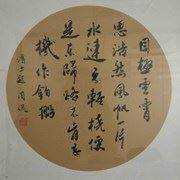 目極雲霄
思浩然風帆一片
水連天輕橈便
是東歸路不肯忘
機作釣船